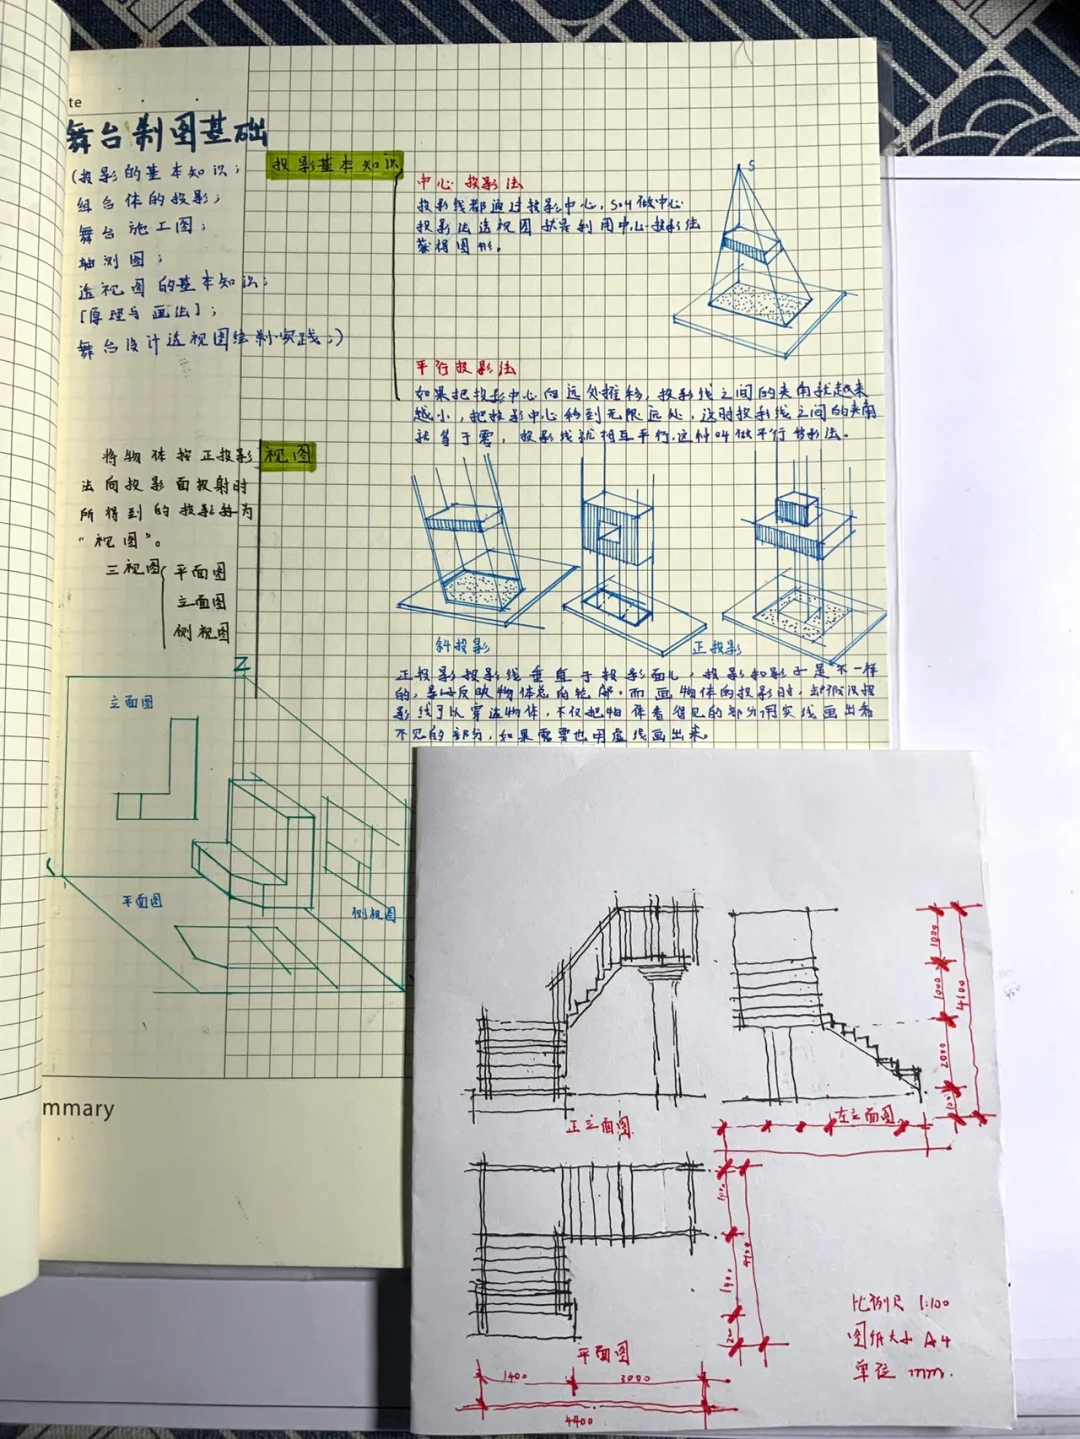 te
舞台制图基础
(投影的基本知识；
组合体的投影；
舞台施工图；
轴测图；
透视图的基本知识；
[原理与画法]；
舞台设计透视图绘制实践；)
投影基本知识
中心投影法
投影线都通过投影中心，叫做中心
投影法透视图就是利用中心投影法
获得图形。
S
平行投影法
如果把投影中心向远处推移，投影线之间的夹角就越来
越小，把投影中心移到无限远处，这时投射线之间的夹角
就等于零，投影线就相互平行，这种叫做平行投影法。
斜投影
正投影
正投影投影线垂直于投影面儿，投影和影子是不一样
的，影子反映物体总的轮廓，而画物体的投影时，却假设投
影线可以穿透物体，不仅把物体看得见的部分用实线画出看
不见的部分，如果需要也用虚线画出来。
视图
将物体按正投影
法向投影面投射时
所得到的投影称为
“视图”。
三视图
平面图
立面图
侧视图
Z
立面图
平面图
侧视图
mmary
正立面图
左立面图
1000
1000
2000
4100
平面图
1400
3000
4400
4100
比例尺 1:100
图纸大小 A4
单位 mm.